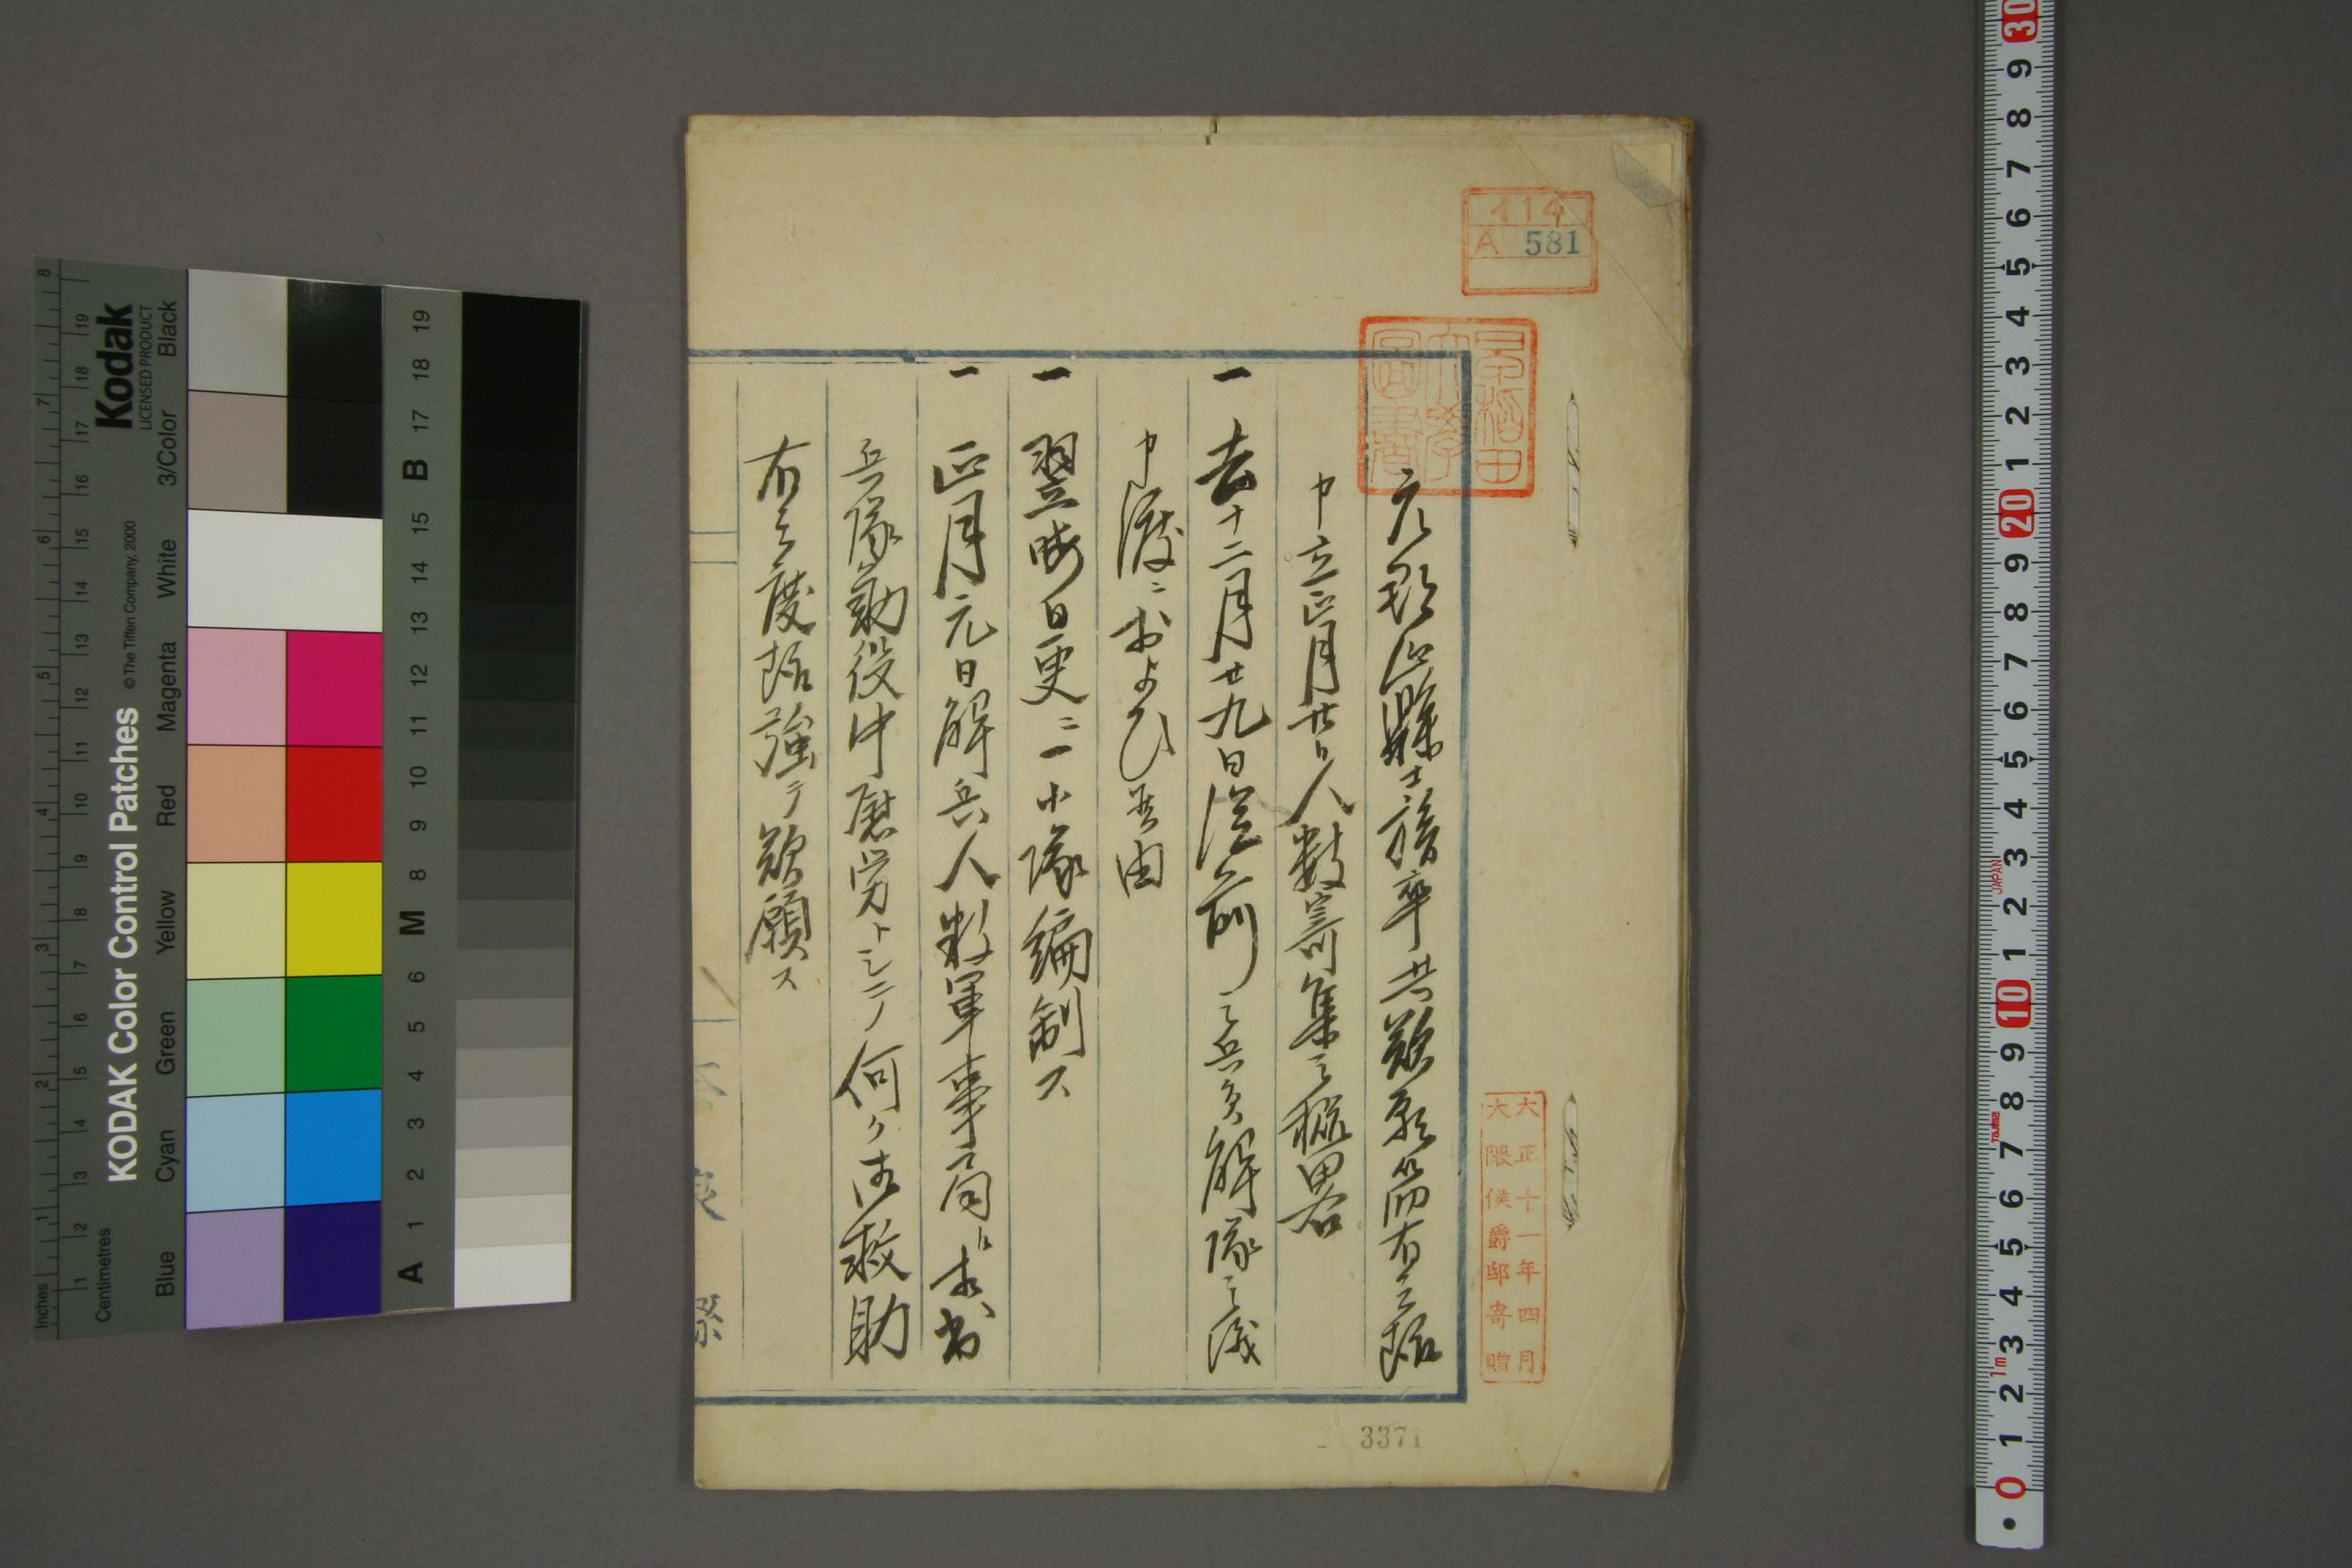 元彰?縣士族卒共歎願筋有之趣
申立正月廿日人数寄集之概畧
一 去十二月廿九日従前之兵員解隊之儀
申渡ニおよひ候由
一 翌晦日更ニ一小隊編制ス
一 正月元日解兵人数軍事局江出
兵隊勤役中慰労トシテ何ケ御救助
有之度趣強テ歎願ス
早稲田大學圖書
イ14
A 581
大正十一年四月
大隈侯爵邸寄贈
3371
KODAK Color Control Patches
© The Tiffen Company, 2000
Kodak
LICENSED PRODUCT
Inches
Centimetres
Blue Cyan Green Yellow Red Magenta White 3/Color Black
A 1 2 3 4 5 6 M 8 9 10 11 12 13 14 15 B 17 18 19
JAPAN
Tajima
1m